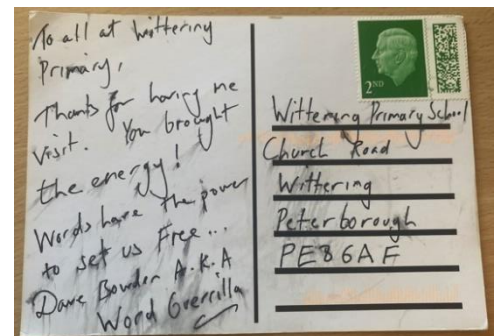 To all at Wittering
Primary,
Thanks for having me
visit. You brought
the energy!
Words have the power
to set us Free...
Dave Bowden A.K.A
Word Guerrilla
2ND
Wittering Primary School
Church Road
Wittering
Peterborough
PE8 6AF